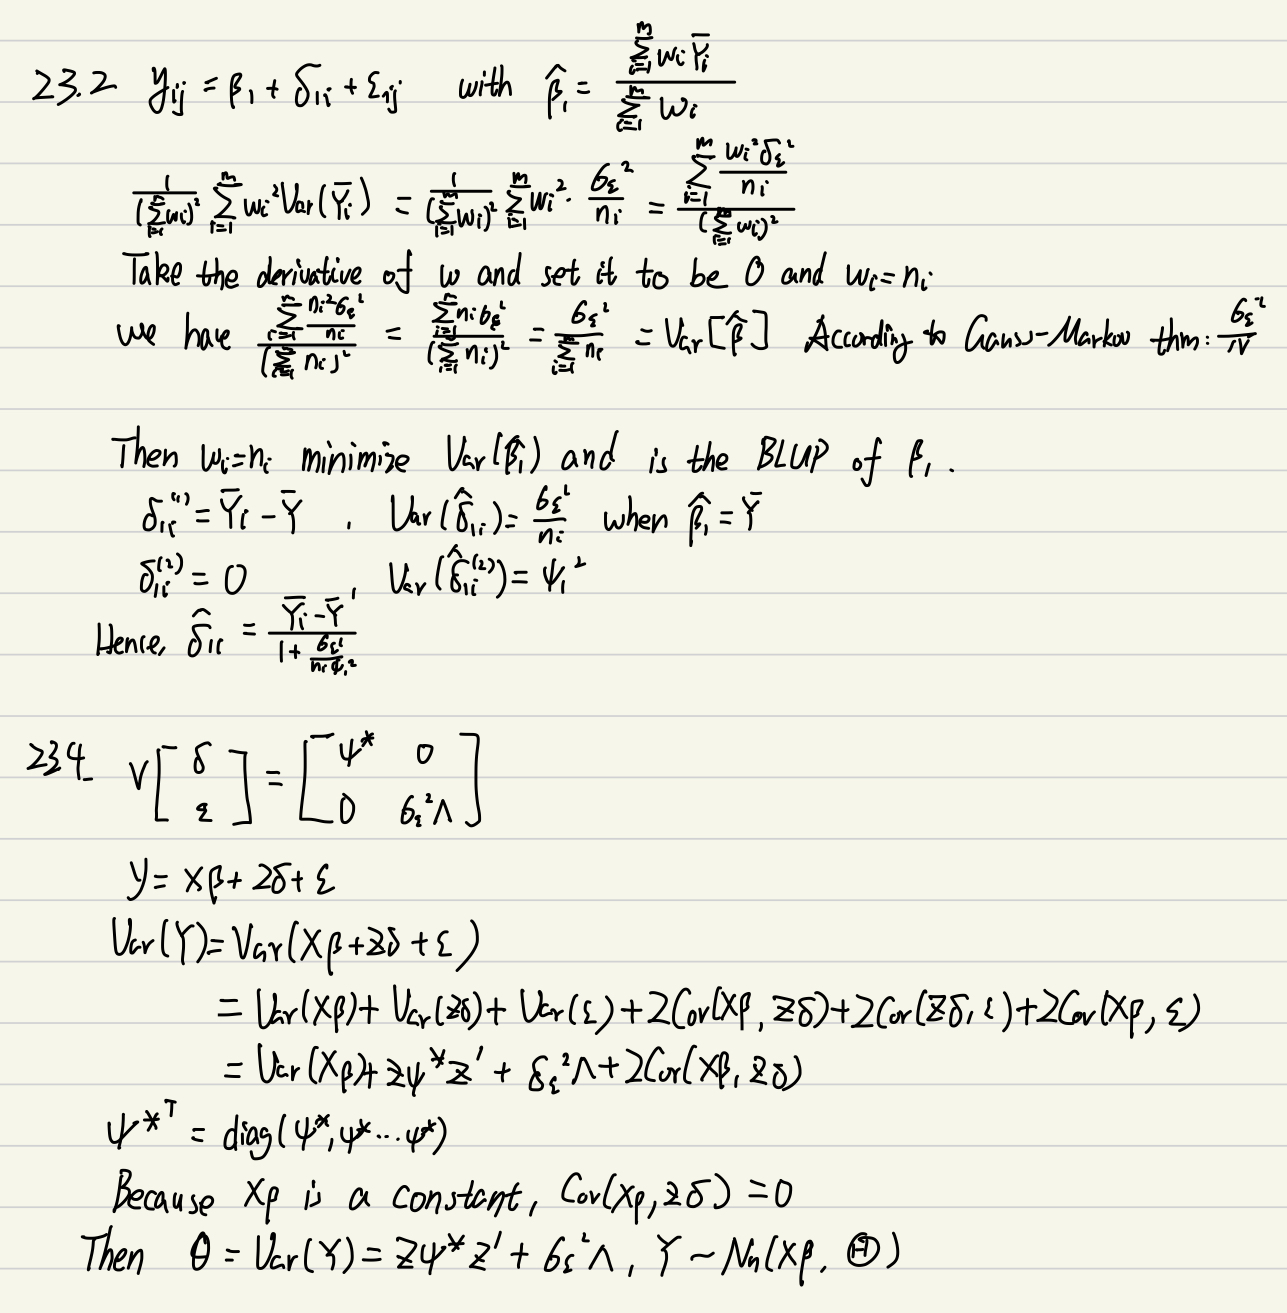 23.2 y_{ij} = β_1 + δ_{1i} + ε_{ij} with \hat{β}_1 = \frac{\sum_{i=1}^{m} w_i \bar{Y}_i}{\sum_{i=1}^{m} w_i}
\frac{1}{(\sum_{i=1}^{m} w_i)^2} \sum_{i=1}^{m} w_i^2 Var(\bar{Y}_i) = \frac{1}{(\sum_{i=1}^{m} w_i)^2} \sum_{i=1}^{m} w_i^2 · \frac{6_ε^2}{n_i} = \frac{\sum_{i=1}^{m} \frac{w_i^2 δ_ε^2}{n_i}}{(\sum_{i=1}^{m} w_i)^2}
Take the derivative of w and set it to be 0 and w_i = n_i
we have \frac{\sum_{i=1}^{m} \frac{n_i^2 6_ε^2}{n_i}}{(\sum_{i=1}^{m} n_i)^2} = \frac{\sum_{i=1}^{m} n_i 6_ε^2}{(\sum_{i=1}^{m} n_i)^2} = \frac{6_ε^2}{\sum_{i=1}^{m} n_i} = Var[\hat{β}] According to Gauss-Markov thm: \frac{6_ε^2}{N}
Then w_i = n_i minimize Var(\hat{β}_1) and is the BLUP of β_1.
δ_{1i}^{(1)} = \bar{Y}_i - \bar{Y} , Var(\hat{δ}_{1i}) = \frac{6_ε^2}{n_i} when \hat{β}_1 = \bar{Y}
δ_{1i}^{(2)} = 0 , Var(\hat{δ}_{1i}^{(2)}) = ψ_1^2
Hence, \hat{δ}_{1i} = \frac{\bar{Y}_i - \bar{Y}}{1 + \frac{6_ε^2}{n_i ψ_1^2}}
23.4 V[δ ε] = [ψ* 0 0 6_ε^2 Λ]
y = Xβ + Zδ + ε
Var(Y) = Var(Xβ + Zδ + ε)
= Var(Xβ) + Var(Zδ) + Var(ε) + 2Cov(Xβ, Zδ) + 2Cov(Zδ, ε) + 2Cov(Xβ, ε)
= Var(Xβ) + Zψ*Z' + δ_ε^2 Λ + 2Cov(Xβ, Zδ)
ψ*^T = diag(ψ*, ψ* ... ψ*)
Because Xβ is a constant, Cov(Xβ, Zδ) = 0
Then θ = Var(Y) = Zψ*Z' + 6_ε^2 Λ, Y ~ N_n(Xβ, Ⓗ)